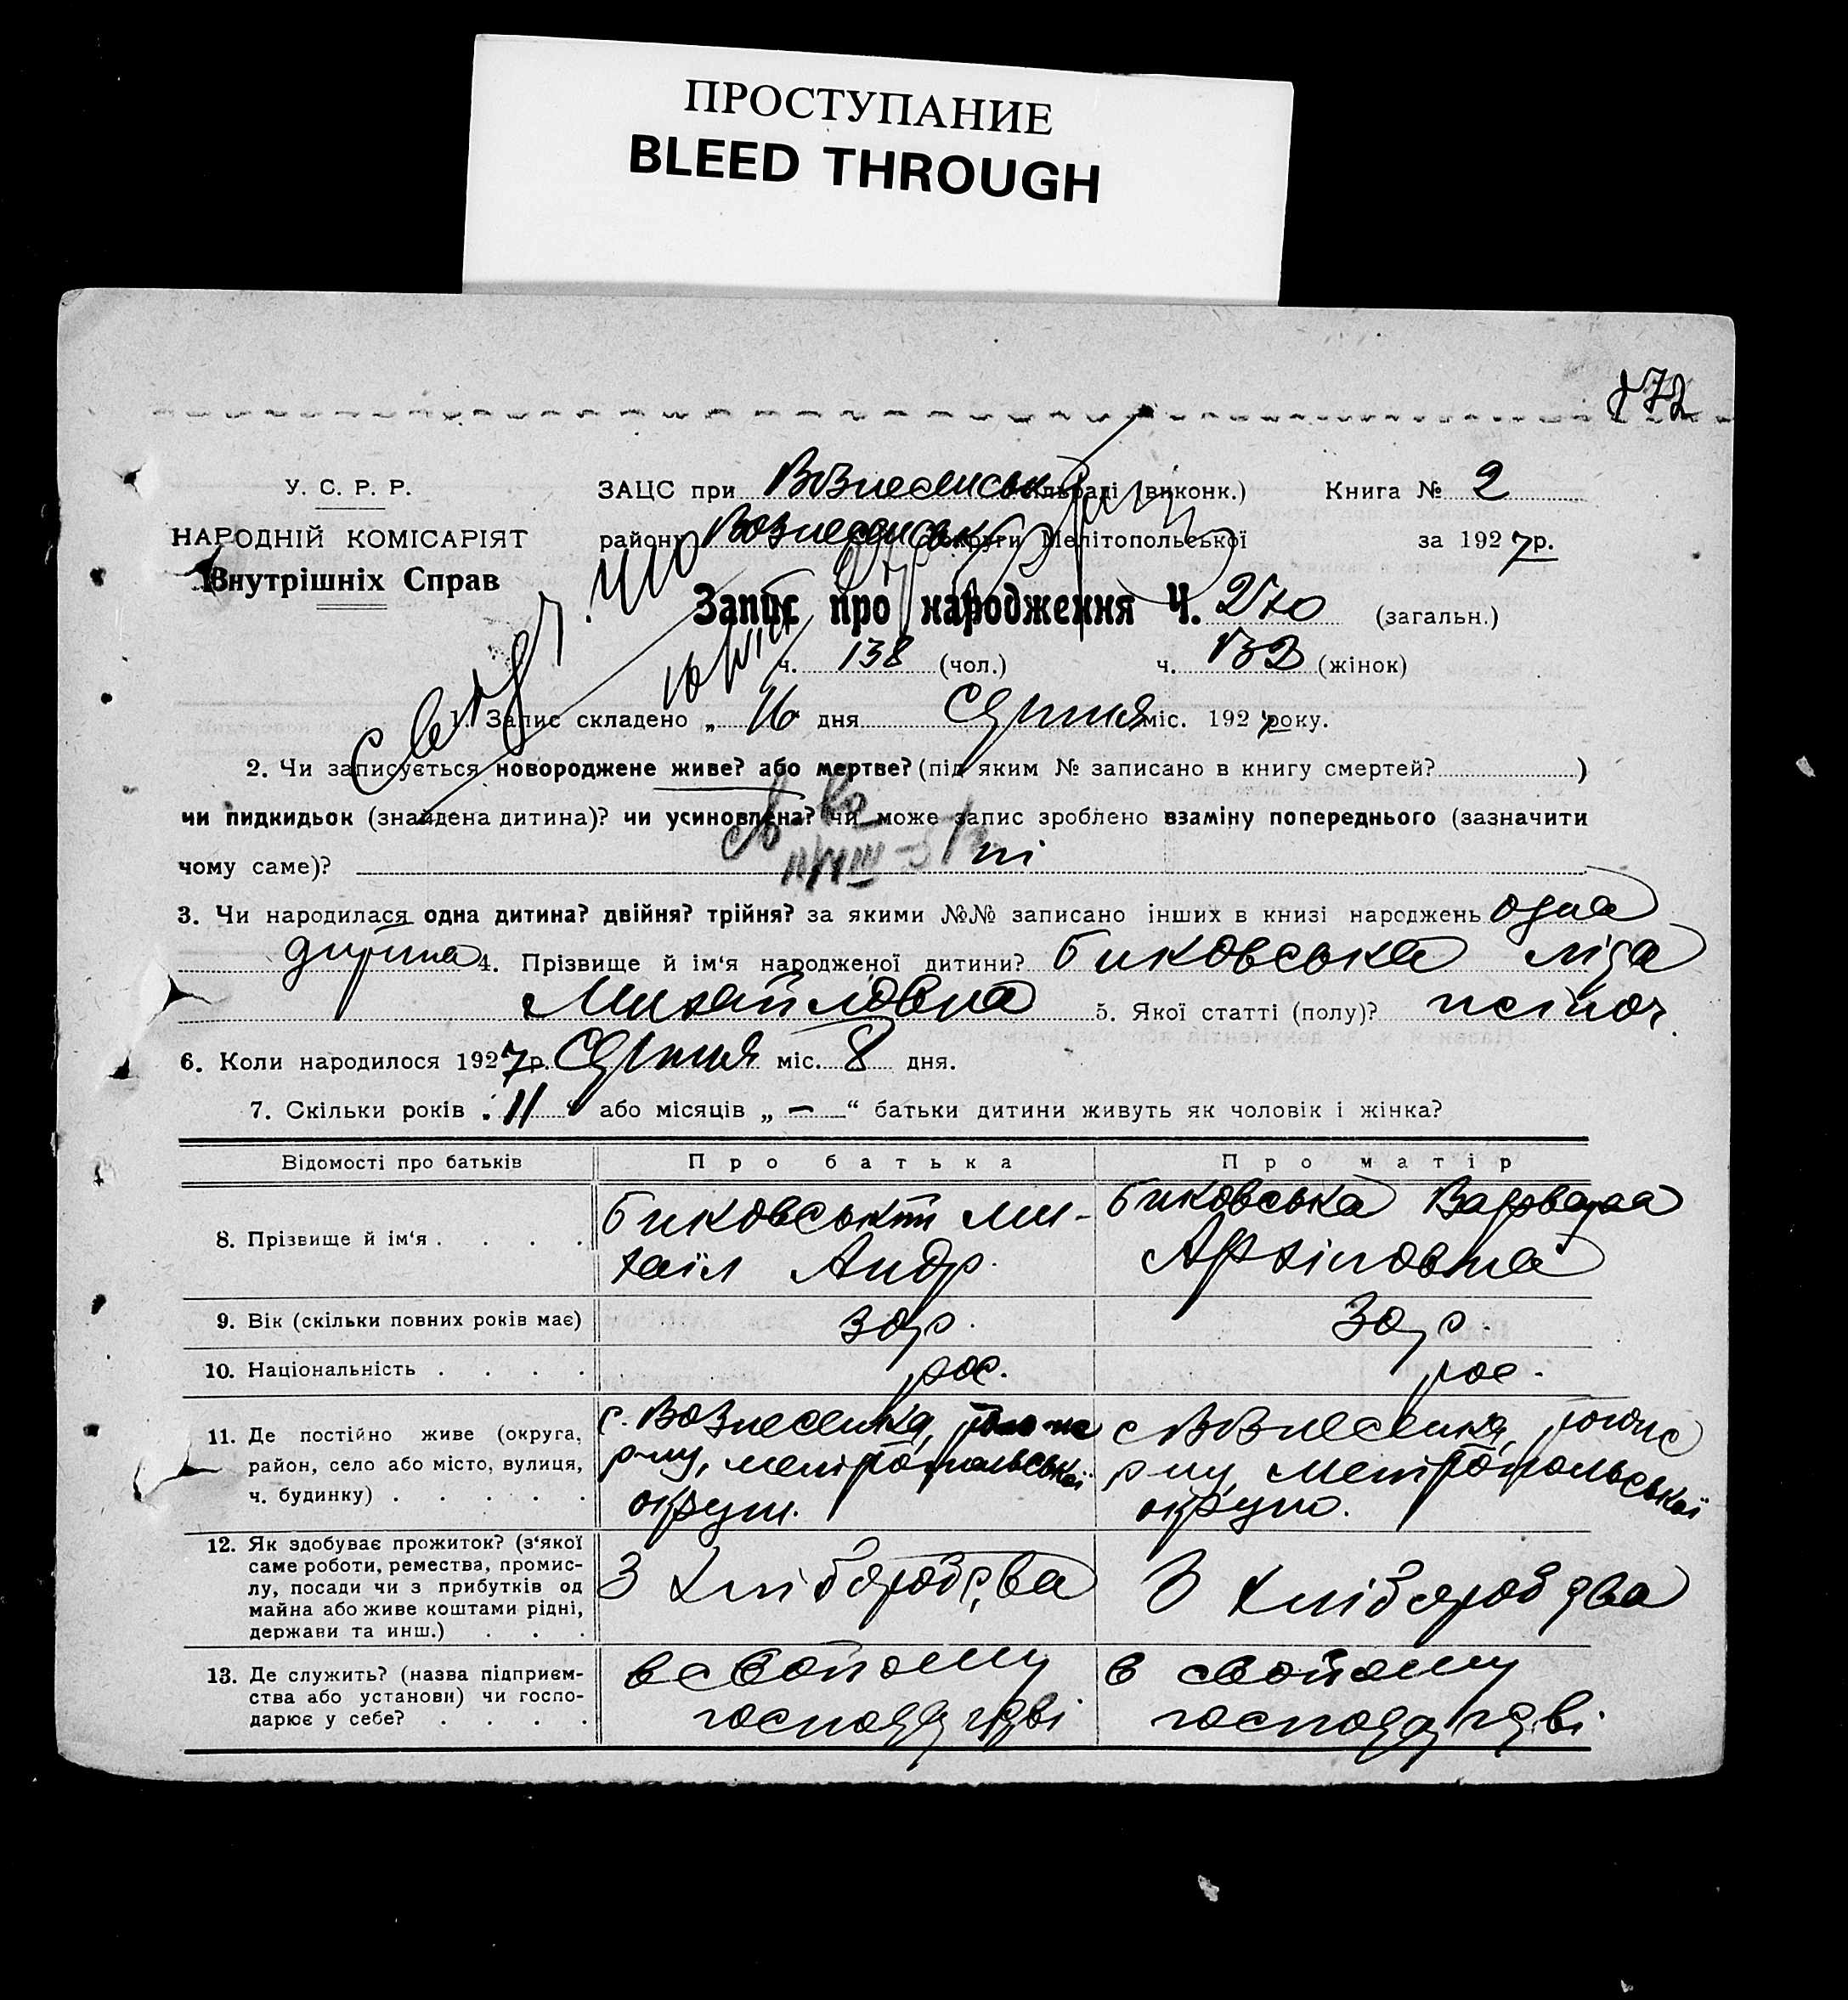 ПРОСТУПАНИЕ
BLEED THROUGH
172
У. С. Р. Р.
НАРОДНІЙ КОМІСАРІЯТ
Внутрішніх Справ
ЗАЦС при Вознесенськ сільраді (виконк.) Книга № 2
району Вознесенськ округи Мелітопольської за 1927 р.
Запис про народження Ч. (загальн.)
ч. 138 (чол.) ч. 132 (жінок)
1. Запис складено „ 16 дня Серпня міс. 1927 року.
2. Чи записується новороджене живе? або мертве? (під яким № записано в книгу смертей? )
чи пидкидьок (знайдена дитина)? чи усиновлена? чи може запис зроблено взаміну попереднього (зазначити
чому саме)? ні
3. Чи народилася одна дитина? двійня? трійня? за якими №№ записано інших в книзі народжень одна
дитина 4. Прізвище й ім'я народженої дитини? Биковська Ліда
Михайловна 5. Якої статті (полу)? жіноч.
6. Коли народилося 1927 р. Серпня міс. 8 дня.
7. Скільки років „ 11 “ або місяців „ — “ батьки дитини живуть як чоловік і жінка?
Відомості про батьків Про батька Про матір
8. Прізвище й ім'я . . . . Биковський Ми-хаіл Андр. Биковська Варвара Архіповна
9. Вік (скільки повних років має) 30 р. 30 р.
10. Національність . . . . рос. рос.
11. Де постійно живе (округа, район, село або місто, вулиця, ч. будинку) . . . . . с. Вознесенка, р-ну, мелітопольської округи. с Вознесенка, р-ну мелітопольської округи.
12. Як здобуває прожиток? (з'якої саме роботи, ремества, промислу, посади чи з прибутків од майна або живе коштами рідні, держави та инш.) . . . З хліборобства З хліборобства
13. Де служить? (назва підприємства або установи) чи господарює у себе? . . . . в свойому господарстві в свойому господарстві